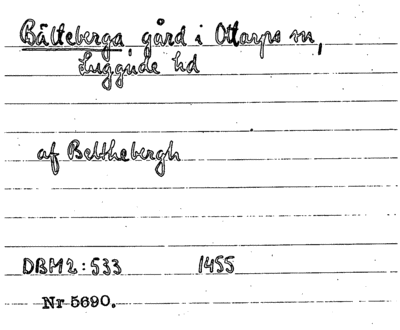 Bälteberga, gård i Ottarps sn,
Luggude hd
af Belthebergh
DBM 2:533 1455
Nr 5690.